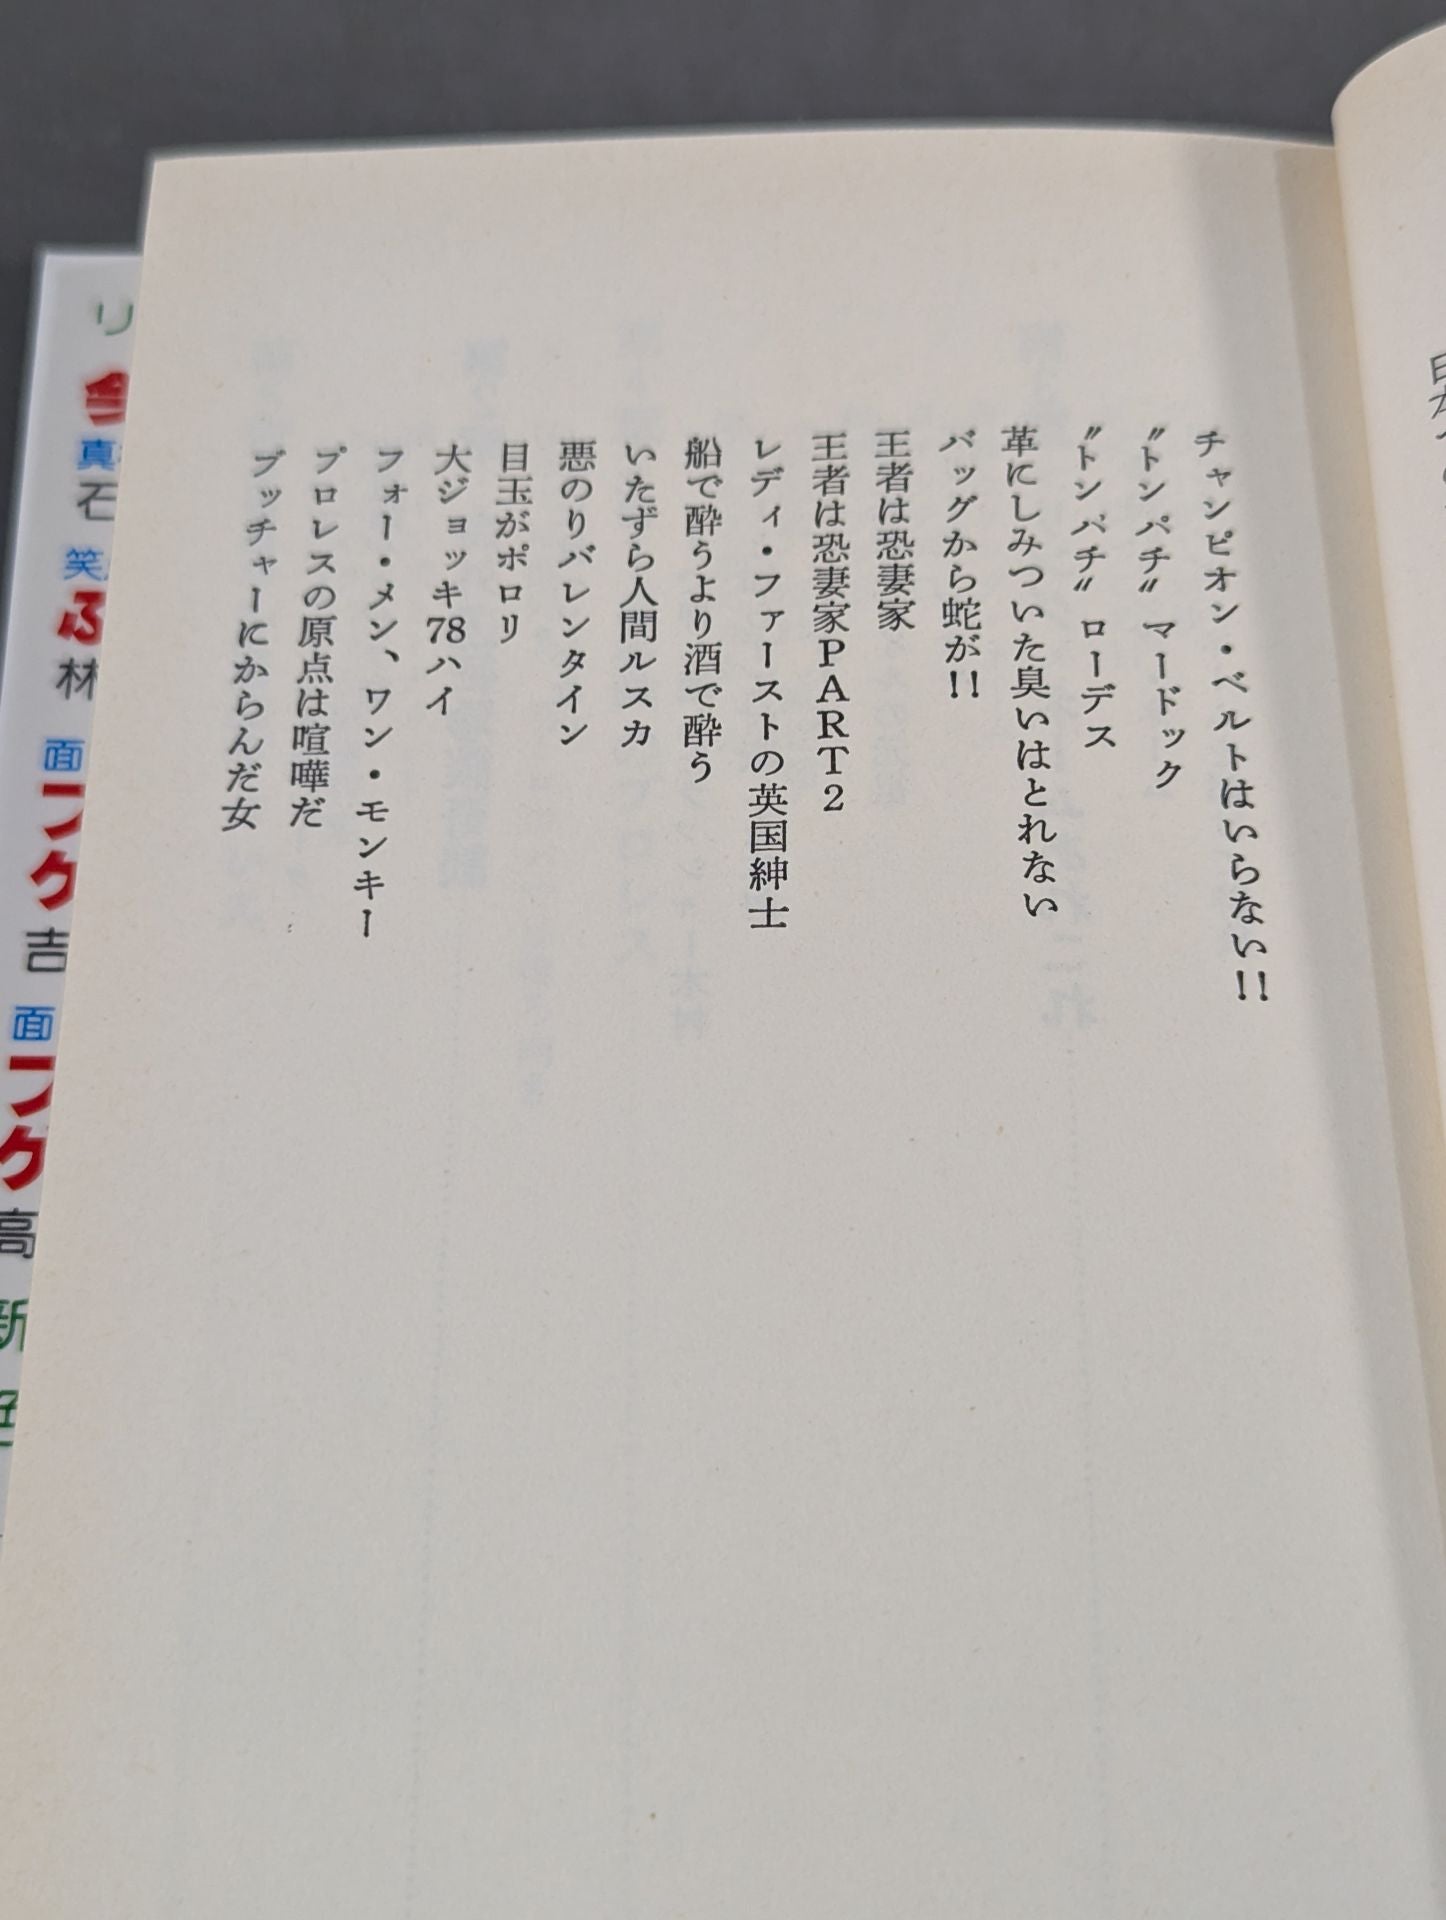 チャンピオン・ベルトはいらない!!
〝トンパチ〟マードック
〝トンパチ〟ローデス
革にしみついた臭いはとれない
バッグから蛇が!!
王者は恐妻家
王者は恐妻家PART2
レディ・ファーストの英国紳士
船で酔うより酒で酔う
いたずら人間ルスカ
悪のりバレンタイン
目玉がポロリ
大ジョッキ78ハイ
フォー・メン、ワン・モンキー
プロレスの原点は喧嘩だ
ブッチャーにからんだ女
リ
真
石
笑
ふ
林
面
フク
吉
面
フク
高
新